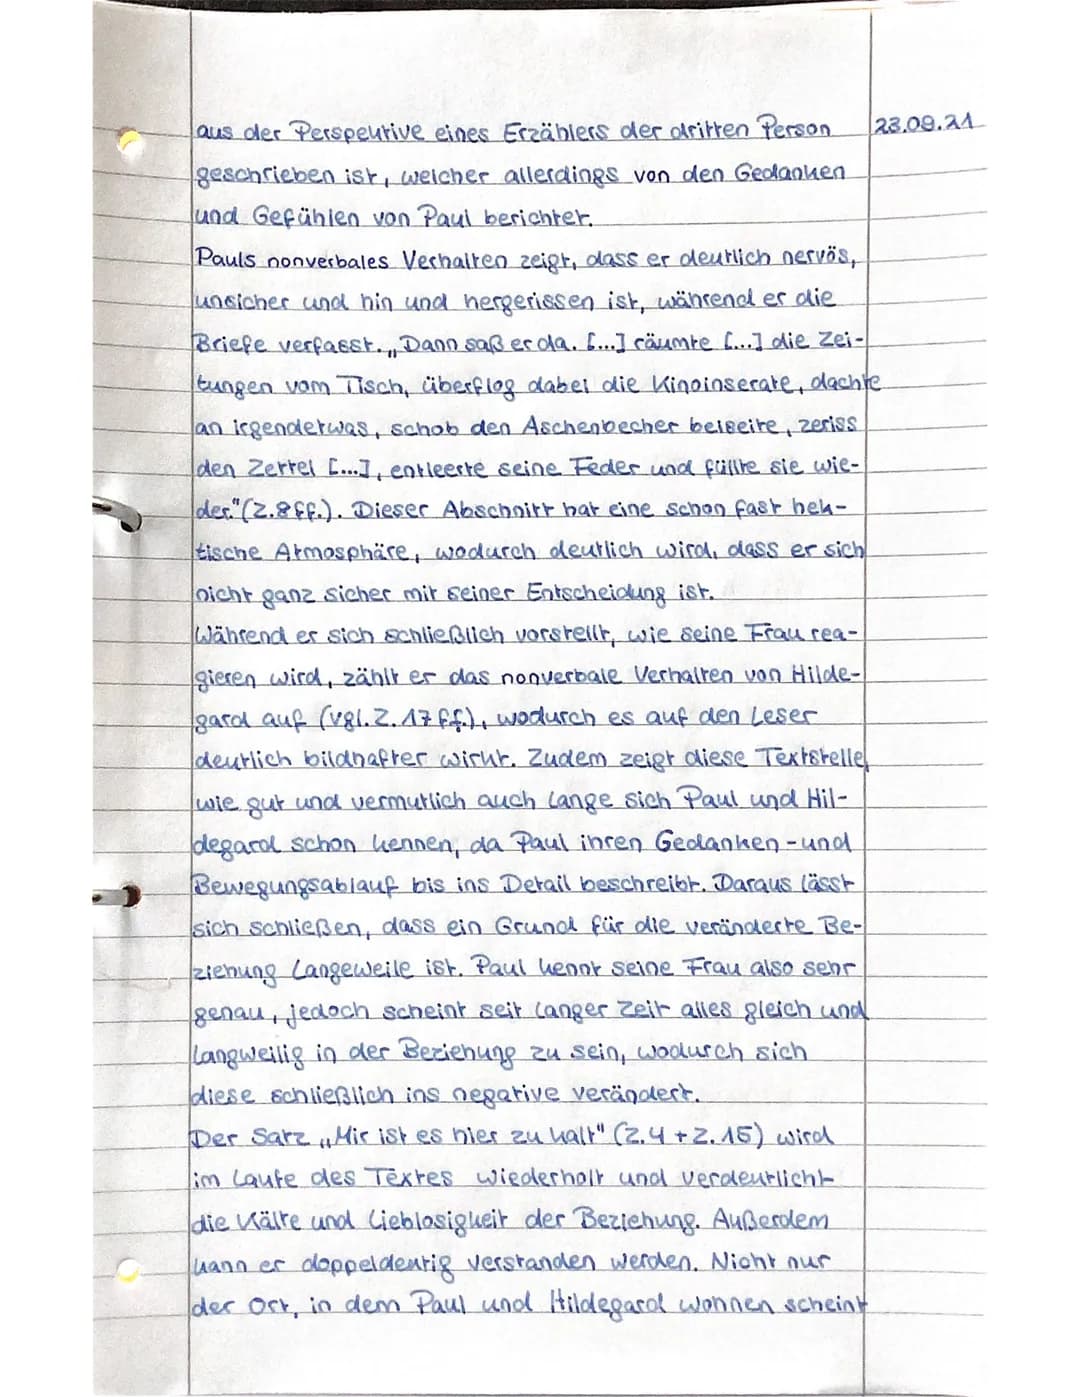 aus der Perspektive eines Erzählers der dritten Person 23.09.21
geschrieben ist, welcher allerdings von den Gedanken
und Gefühlen von Paul berichtet.
Pauls nonverbales Verhalten zeigt, dass er deutlich nervös,
unsicher und hin und hergerissen ist, während er die
Briefe verfasst. „Dann saß er da. [...] räumte [...] die Zei-
tungen vom Tisch, überflog dabei die Kinoinserate, dachte
an irgendetwas, schob den Aschenbecher beiseite, zeriss
den Zettel [...], entleerte seine Feder und füllte sie wie-
der." (Z.8ff.). Dieser Abschnitt hat eine schon fast hek-
tische Atmosphäre, wodurch deutlich wird, dass er sich
nicht ganz sicher mit seiner Entscheidung ist.
Während er sich schließlich vorstellt, wie seine Frau rea-
gieren wird, zählt er das nonverbale Verhalten von Hilde-
gard auf (vgl. Z. 17 ff.), wodurch es auf den Leser
deutlich bildhafter wirkt. Zudem zeigt diese Textstelle,
wie gut und vermutlich auch lange sich Paul und Hil-
degard schon kennen, da Paul ihren Gedanken-und
Bewegungsablauf bis ins Detail beschreibt. Daraus lässt
sich schließen, dass ein Grund für die veränderte Be-
ziehung Langeweile ist. Paul kennt seine Frau also sehr
genau, jedoch scheint seit langer Zeit alles gleich und
langweilig in der Beziehung zu sein, wodurch sich
diese schließlich ins negative verändert.
Der Satz „Mir ist es hier zu kalt" (Z.4 + Z.15) wird
im Laufe des Textes wiederholt und verdeutlicht
die Kälte und Lieblosigkeit der Beziehung. Außerdem
kann er doppeldeutig verstanden werden. Nicht nur
der Ort, in dem Paul und Hildegard wohnen scheint